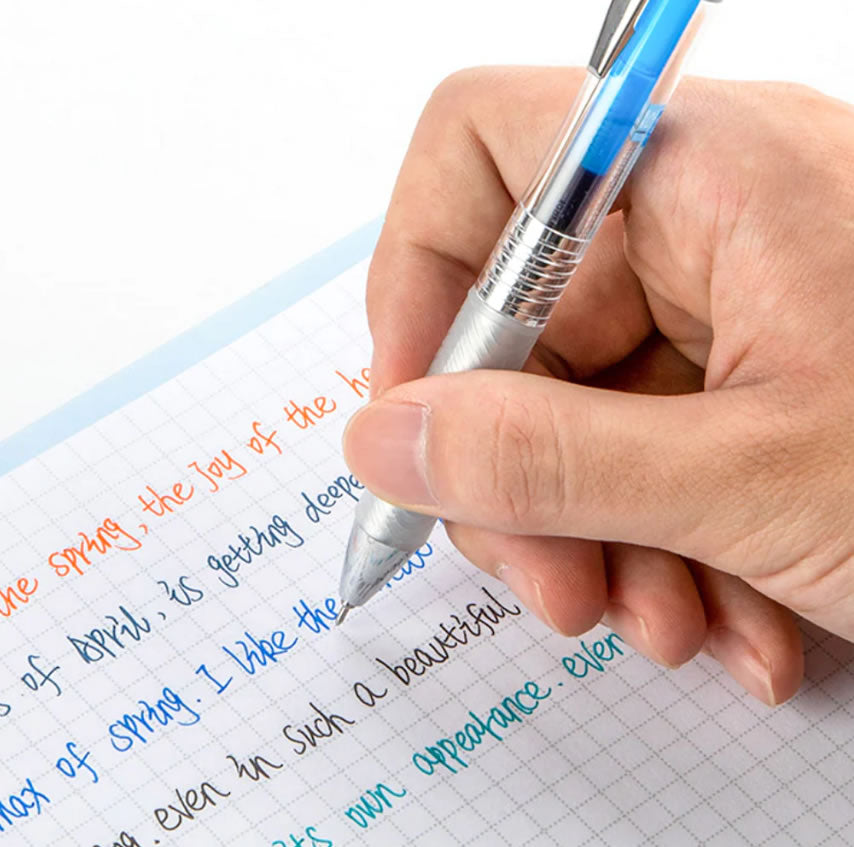 the spring, the joy of the he
s of April, is getting deepe
max of spring. I like the
ng. even in such a beautiful
its own appearance. even